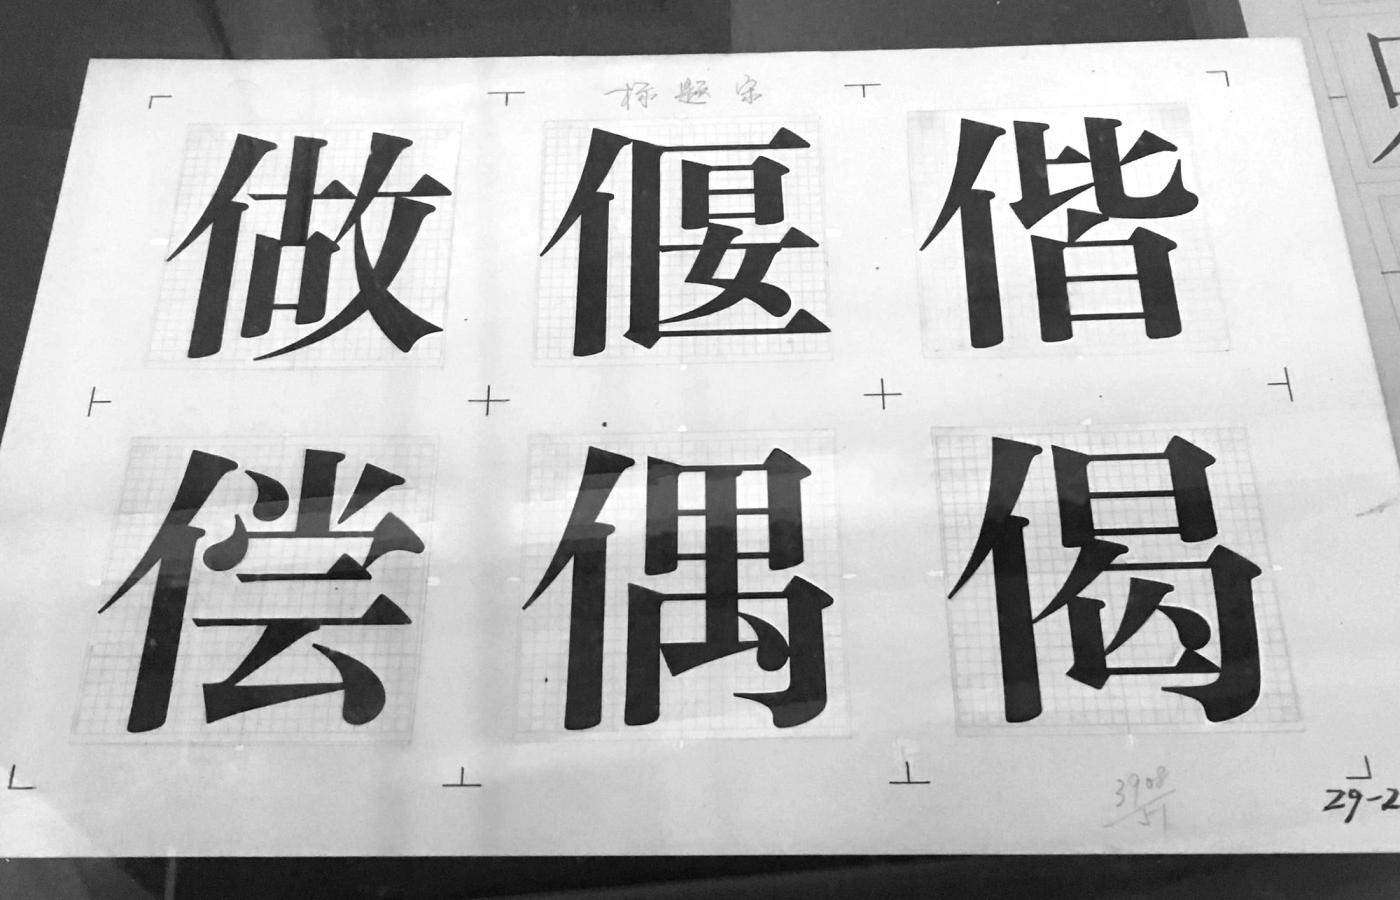 标题宋
做偃偕
偿偶偈
3908/51
29-2